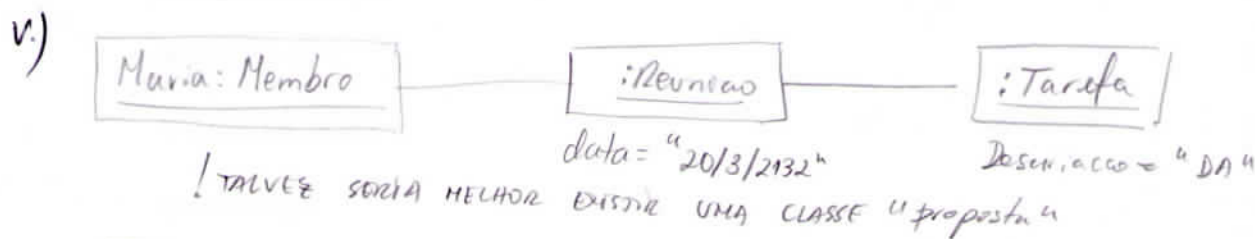 v.)
Maria: Membro
:Reuniao
:Tarefa
data= "20/3/2132"
Descriacao = "DA"
! TALVEZ SERIA MELHOR EXISTIR UMA CLASSE "proposta"